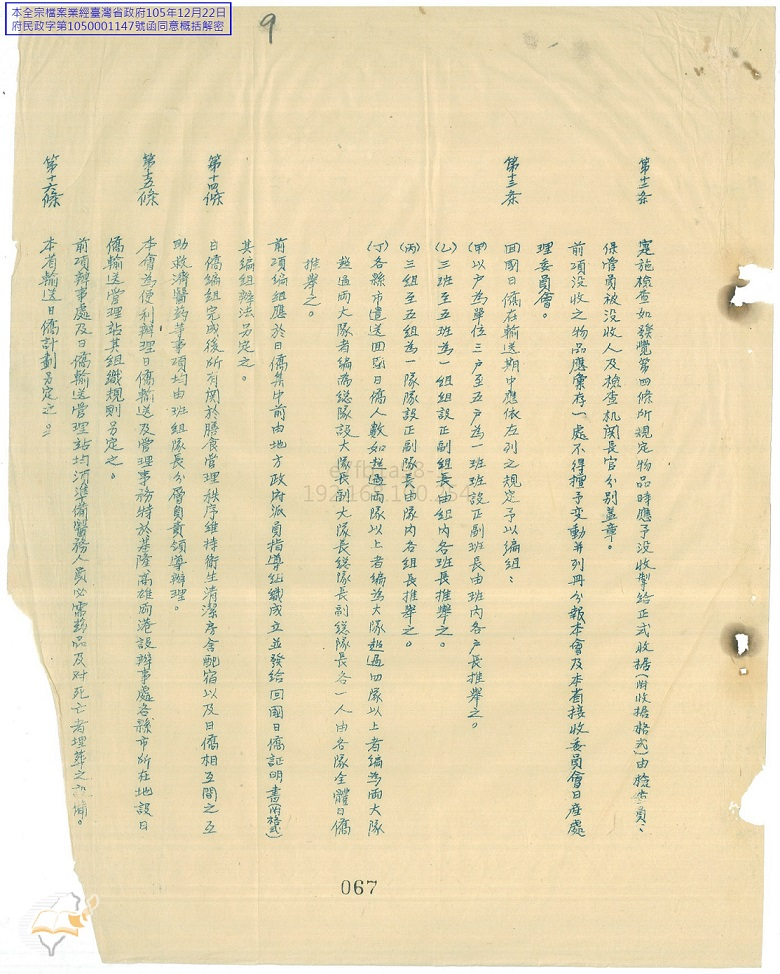 本全宗檔案業經臺灣省政府105年12月22日
府民政字第1050001147號函同意概括解密
9
第十二条
實施檢查如發覺第四條所規定物品時應予没收掣給正式收据(附收据格式)由檢查員、
保管員被没收人及檢查机関長官分别蓋章。
前項没收之物品應彙存一處不得擅予变動并列冊分報本會及本省接收委員會日産處
理委員會。
第十三条
回國日僑在輸送期中應依左列之規定予以編組：
(甲)以户為單位三户至五户為一班班設正副班長由班内各户長推舉之。
(乙)三班至五班為一組組設正副組長由組内各班長推舉之。
(丙)三組至五組為一隊隊設正副隊長由隊内各組長推舉之。
(丁)各縣市遣送回國日僑人數如超過両隊以上者編為大隊超過四隊以上者編為両大隊
超過両大隊者編為総隊設大隊長副大隊長総隊長副総隊長各一人由各隊全體日僑
推舉之。
前項編組應於日僑集中前由地方政府派員指導組織成立並發給回國日僑証明書(附格式)
其編組辦法另定之。
第十四條
日僑編組完成後所有関於膳食管理秩序維持衛生清潔房舍配宿以及日僑相互間之互
助救濟醫药等事項均由班組隊長分層負責領導辦理。
第十五條
本會為便利辦理日僑輸送及管理事務特於基隆高雄両港設辦事處各縣市所在地設日
僑輸送管理站其組織規則另定之。
前項辦事處及日僑輸送管理站均須準備醫務人員必需药品及对死亡者埋葬之設備。
第十六條
本省輸送日僑計劃另定之。
067